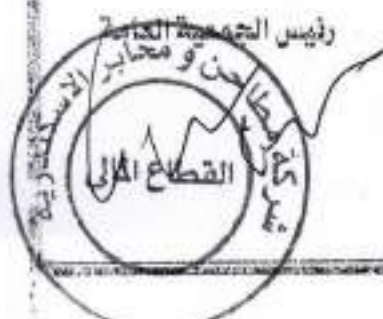 رئيس الجمعية العامة
شركة مطاحن و مخابز الاسكندرية
القطاع المالى